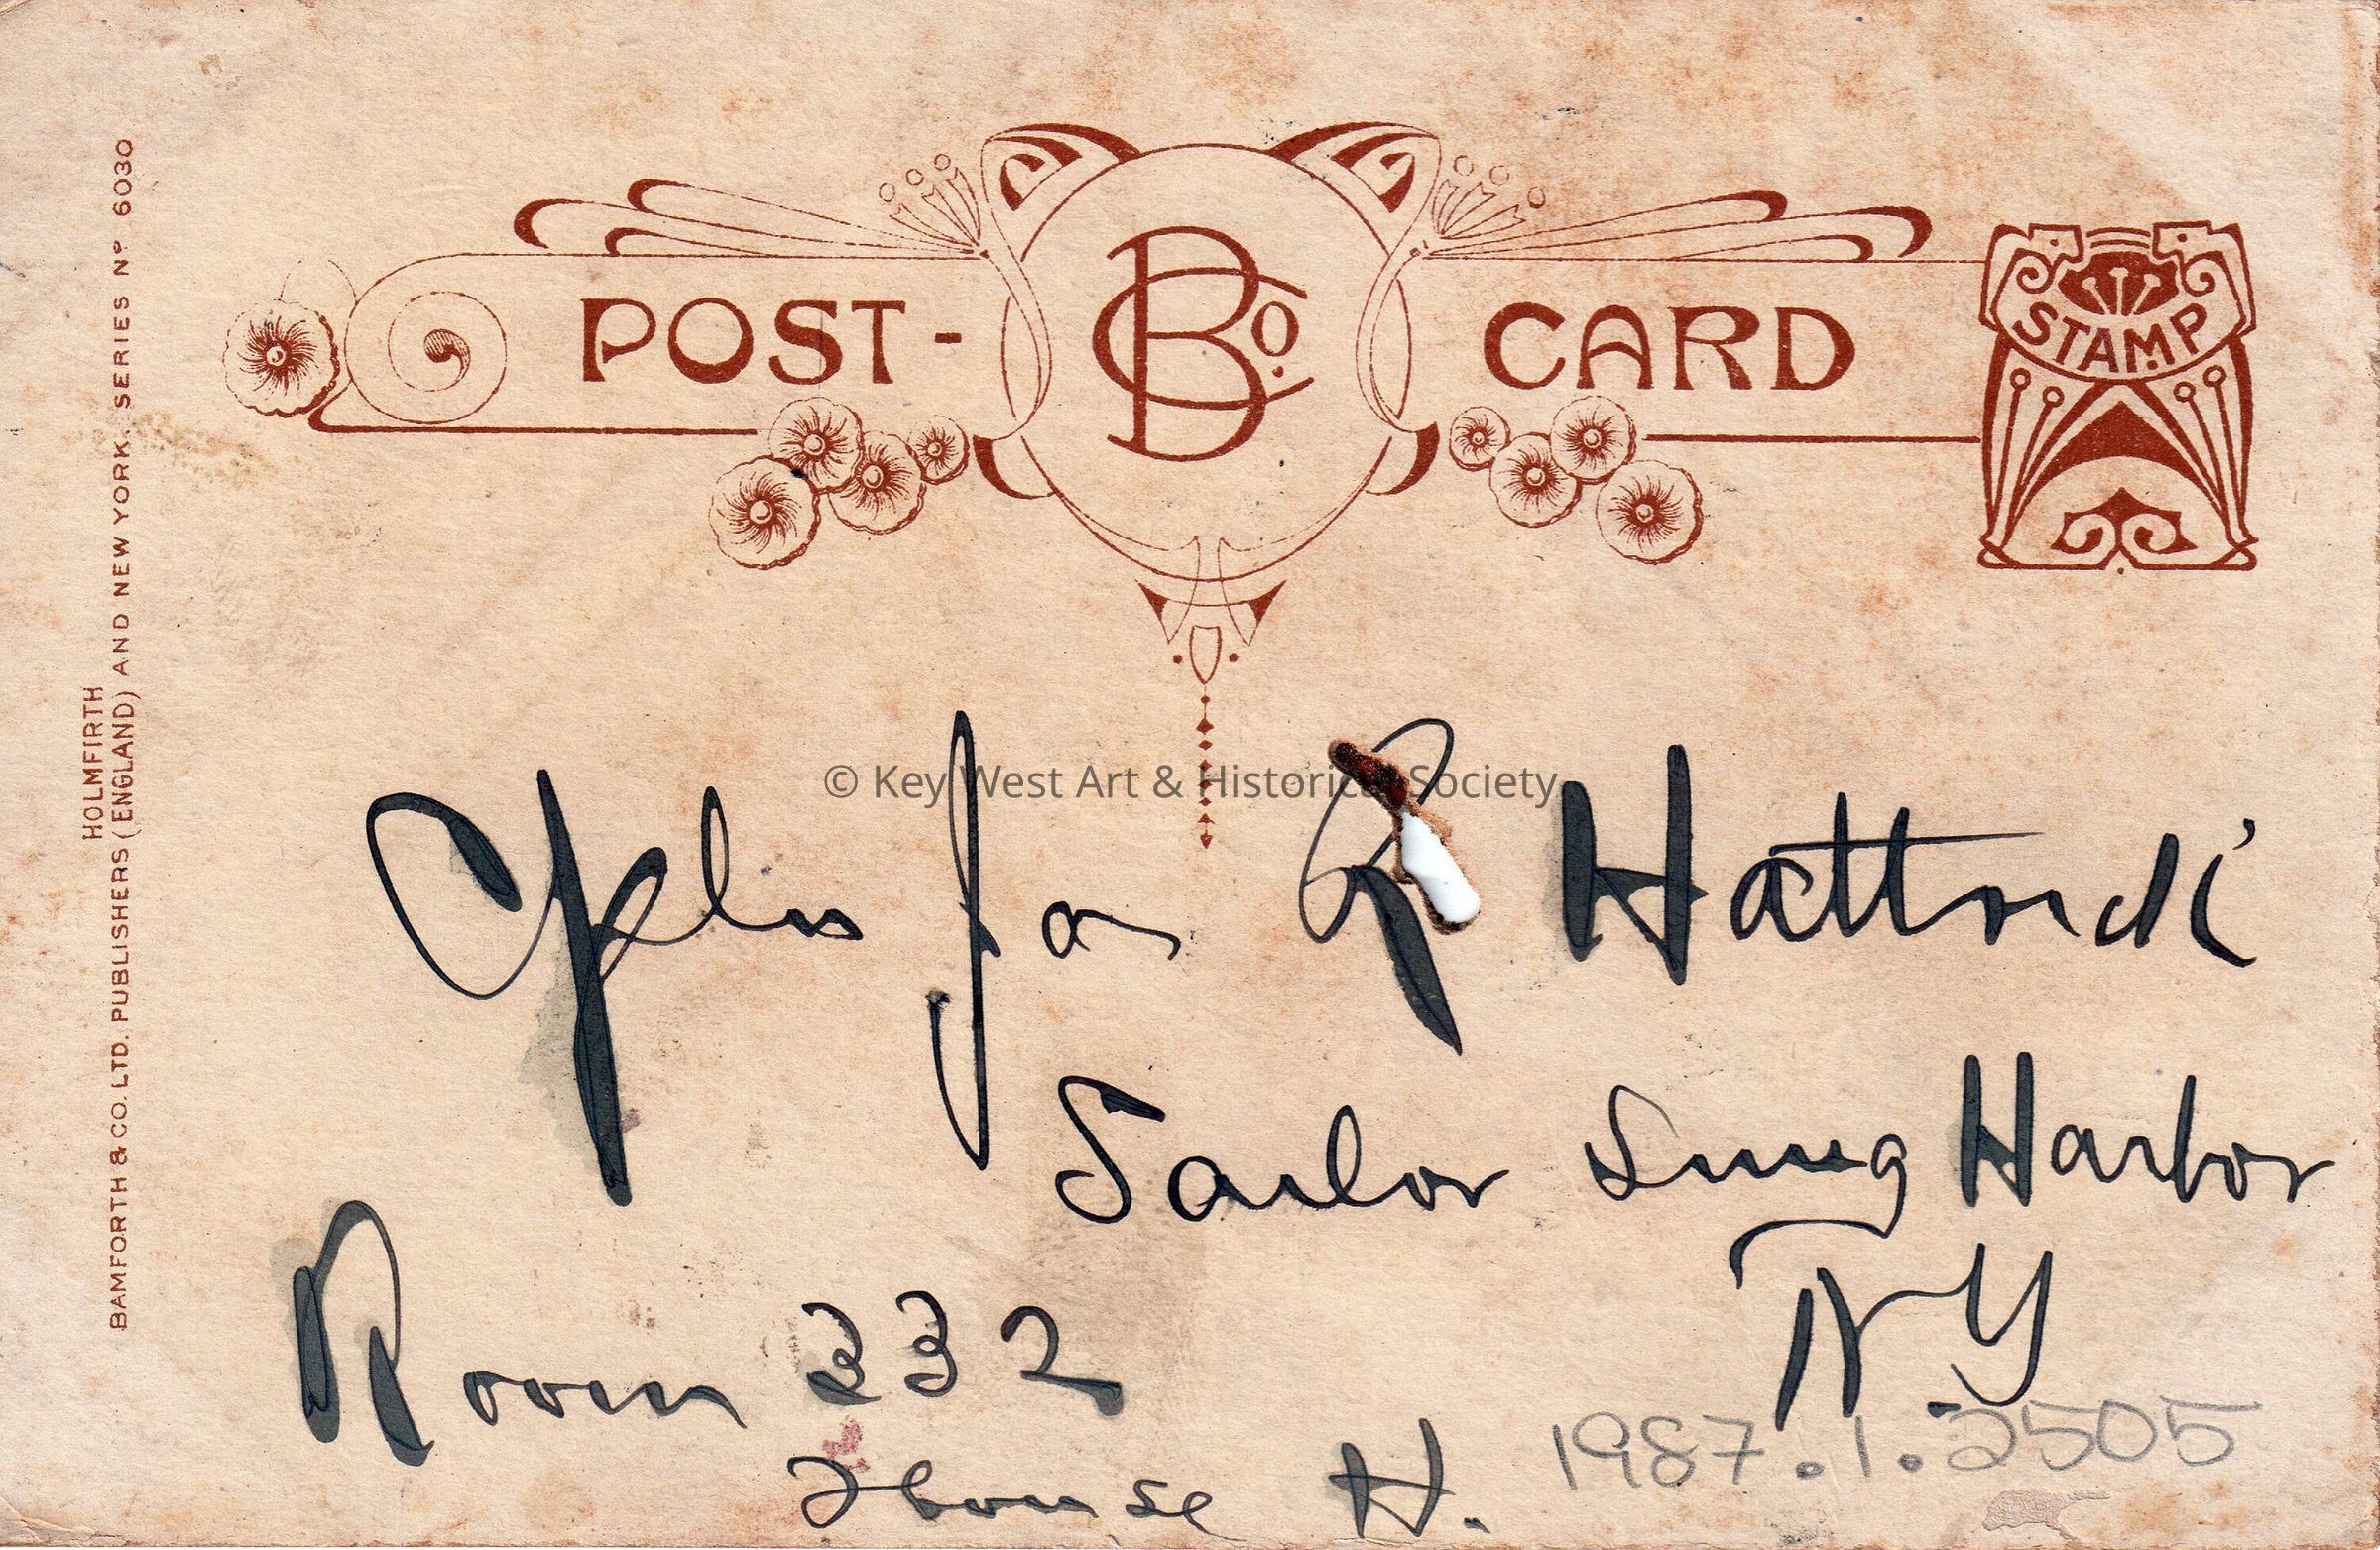 POST- BCo. CARD
STAMP
HOLMFIRTH
BAMFORTH & CO. LTD. PUBLISHERS (ENGLAND) AND NEW YORK. SERIES Nº 6030
© Key West Art & Historical Society
Jas R Hattrick
Sailor Snug Harbor
N.Y
Room 332
House H.
1987.1.2505